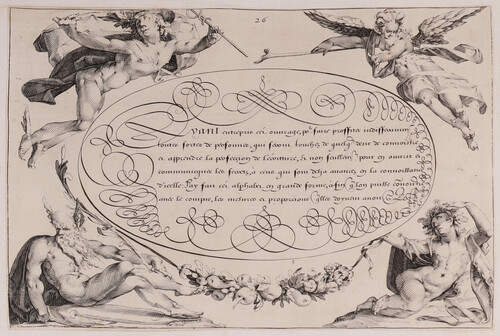 26
Ayant entrepris cet ouvrage, po^r faire proffiter indifferamm^t
toutes sortes de personnes, qui seront touchez de quelq desir de connoistre
et apprendre la perfection de l'escriture, & non seullem^t pour en ouvrir et
communiquer les secretz, a ceux qui sont desja avancez en la connoissance
d'icelle. J'ay faict cet alphabet en grande forme, afin q lon puisse connoistre
avec le compas, les mesures et proportions